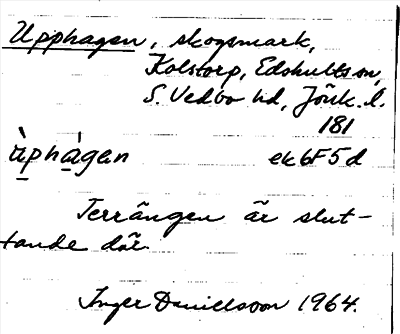 Upphagen, skogsmark,
Kolstorp, Edshults sn,
S. Vedbo hd, Jönk. l.
181
ùp̱hà̱gan ek6F5d
Terrängen är slut-
tande där
Inger Danielsson 1964.